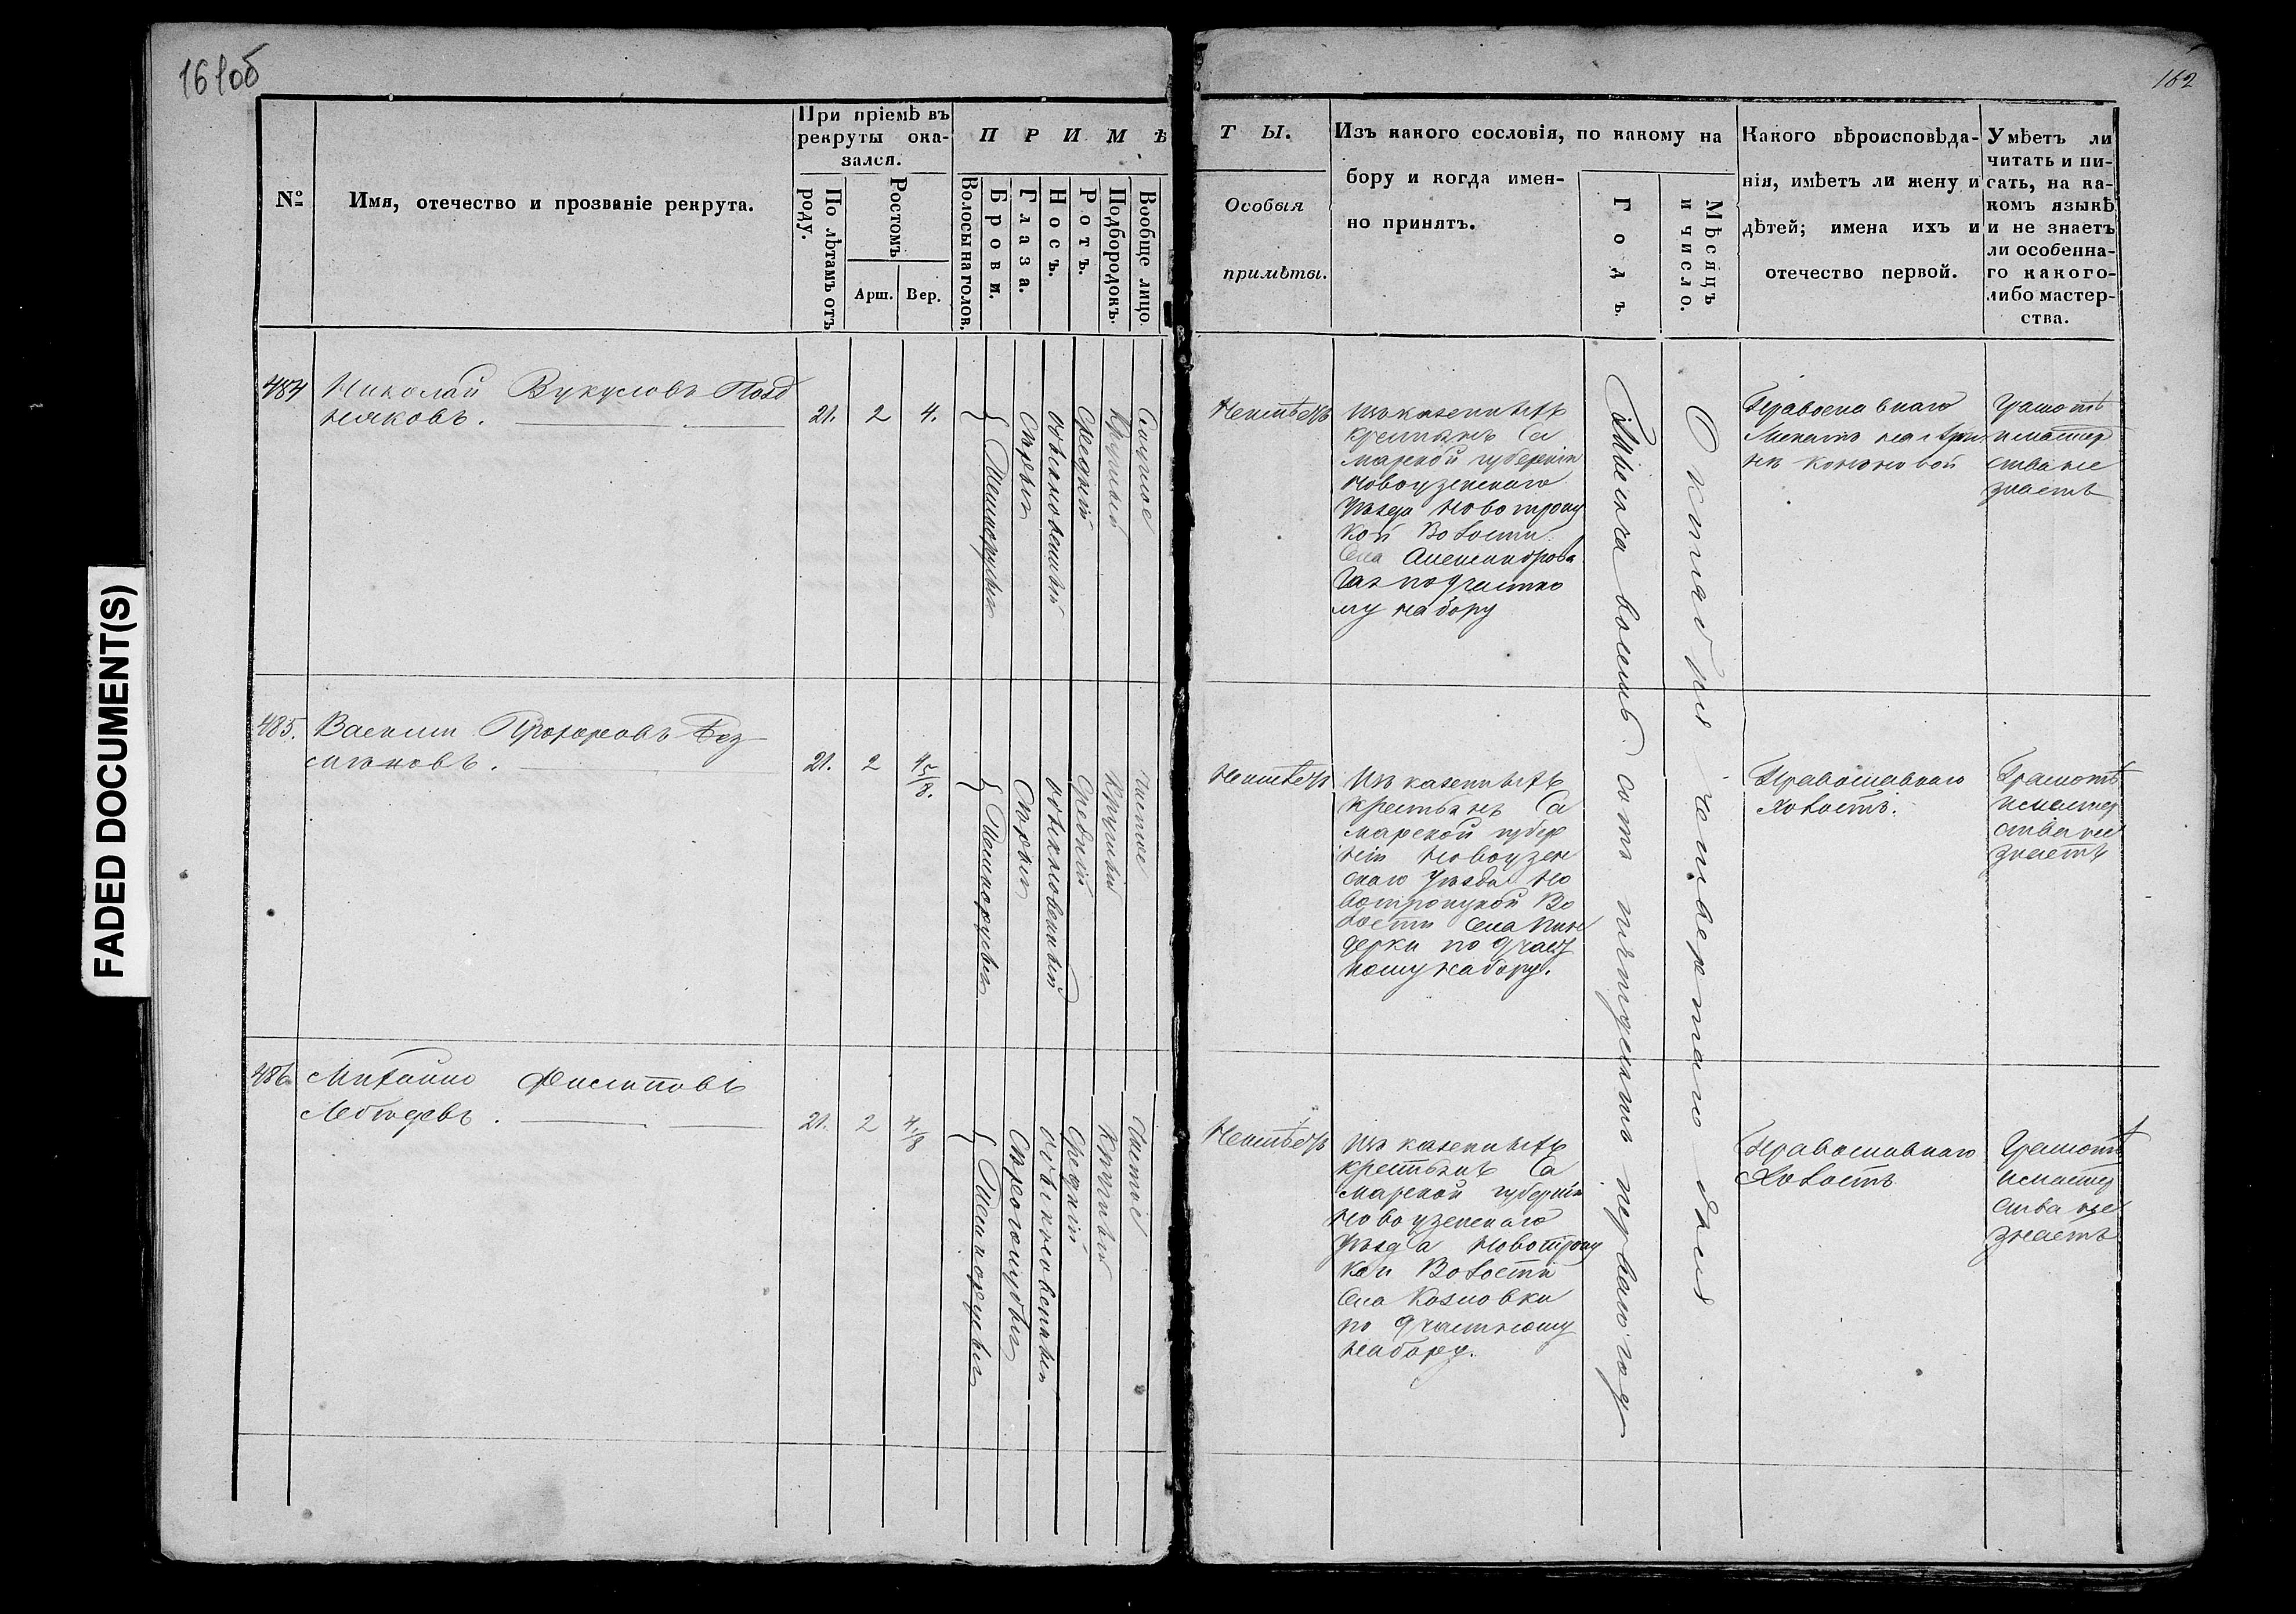 161об
162
FADED DOCUMENT(S)
№
Имя, отечество и прозваніе рекрута.
При пріемѣ въ
рекруты ока-
зался.
По лѣтамъ отъ
роду.
Ростомъ
Арш.
Вер.
ПРИМѢ
Волосы на голов.
Брови.
Глаза.
Носъ.
Ротъ.
Подбородокъ.
Вообще лицо.
ТЫ.
Особыя
примѣты.
Изъ какого сословія, по какому на
бору и когда имен-
но принятъ.
Годъ.
Мѣсяцъ
и число.
Какого вѣроисповѣда-
нія, имѣетъ ли жену и
дѣтей; имена ихъ и
отечество первой.
Умѣетъ ли
читать и пи-
сать, на ка-
комъ языкѣ
и не знаетъ
ли особенна-
го какого-
либо мастер-
ства.
484
Николай Вукуловъ Позд
няковъ.
21.
2
4.
Темнорусыя
Сѣрыя
обыкновенный
Средній
Круглый
Из казенныхъ
крестьянъ Са
марской губерніи
Новоузенскаго
Уѣзда Новотроиц
кой Волости
Села Александрова
Гая по 9 частно
му набору
Тысяча восемь сотъ пятдесятъ перваго года
Октября четвертаго дня
Православнаго
Женатъ на
Грамотѣ
и мастер
ства не
знаетъ
485.
Василий Прохоровъ Без
21.
2
4 5/8.
Темнорусыя
Сѣрыя
обыкновенный
Средній
Круглый
Чистое
Изъ казенныхъ
крестьянъ Са
марской губер
ніи Новоузен
скаго Уѣзда Но
вотроицкой Во
лости Села
по 9 част
ному набору.
Православнаго
Холостъ.
Грамотѣ
и мастер
ства не
знаетъ
486
Михайло Филиповъ
Лебедевъ.
21.
2
4 1/8
Темнорусыя
Сѣроголубыя
обыкновенный
Средній
Круглый
Чистое
Изъ казенныхъ
крестьянъ Са
марской губерніи
Новоузенскаго
Уѣзда Новотроиц
кой Волости
Села Козловки
по 9 частному
набору.
Православнаго
Холостъ
Грамотѣ
и мастер
ства не
знаетъ